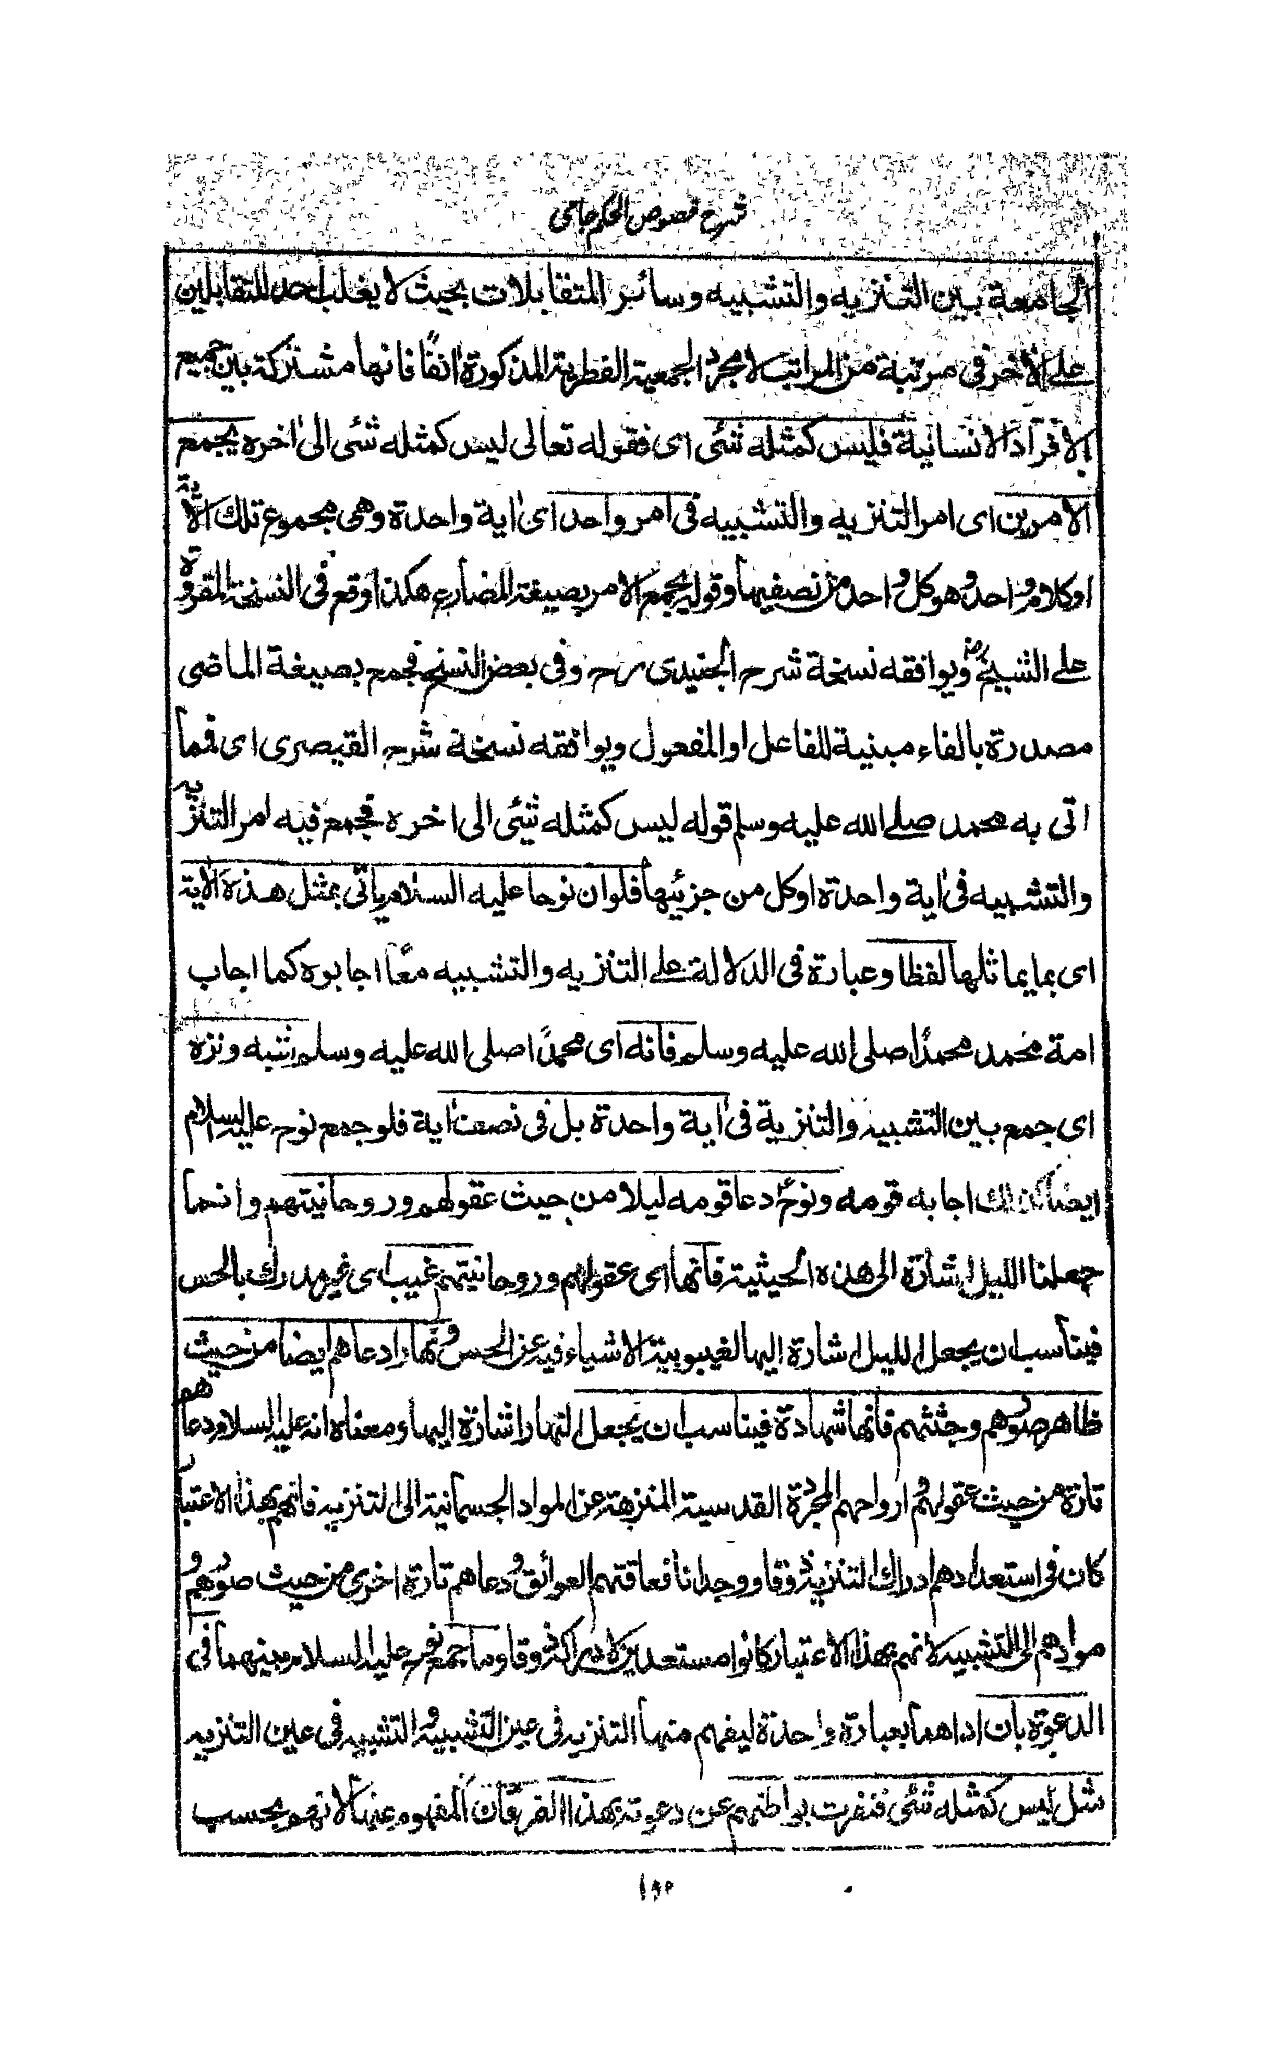 شرح فصوص الحكم جامى
الجامعة بين التنزيه والتشبيه وسائر المتقابلات بحيث لا يغلب احد المتقابلين
على الاخر فى مرتبة من المراتب لا مجرد الجمعية الفطرية المذكورة انفا فانها مشتركة بين جميع
الافراد الانسانية فليس كمثله شئ اى فقوله تعالى ليس كمثله شئ الى اخره يجمع
الامرين اى امر التنزيه والتشبيه فى امر واحد اى اية واحدة وهى مجموع تلك الاية
او كلام واحد وهو كل واحد من نصفيها وقوله يجمع الامر بصيغة المضارع هكذا وقع فى النسخة المقروة
على الشيخ رض ويوافقه نسخة شرح الجنيدى رح وفى بعض النسخ فجمع بصيغة الماضى
مصدرة بالفاء مبنية للفاعل او المفعول ويوافقه نسخة شرح القيصرى اى فما
اتى به محمد صلى الله عليه وسلم قوله ليس كمثله شئ الى اخره فجمع فيه امر التنزيه
والتشبيه فى اية واحدة او كل من جزئيها فلو ان نوحا عليه السلام ياتى بمثل هذه الاية
اى بما يماثلها لفظا وعبارة فى الدلالة على التنزيه والتشبيه معا اجابوه كما اجاب
امة محمد محمدا صلى الله عليه وسلم فانه اى محمدا صلى الله عليه وسلم شبه ونزه
اى جمع بين التشبيه والتنزية فى اية واحدة بل فى نصف اية فلو جمع نوح عليه السلام
ايضا كذلك اجابه قومه ونوح دعا قومه ليلا من حيث عقولهم وروحانيتهم وانما
جعلنا الليل اشارة الى هذه الحيثية فانها اى عقولهم وروحانيتهم غيب اى غير مدرك بالحس
فيناسب ان يجعل الليل اشارة اليها لغيبوبية الاشياء فيه عن الحس ونهارا دعاهم ايضا من حيث
ظاهر صورهم وجثثهم فانها شهادة فيناسب ان يجعل النهار اشارة اليها ومعناه انه عليه السلام دعاهم
تارة من حيث عقولهم وارواحهم المجردة القدسية المنزهة عن المواد الجسمانية الى التنزيه فانهم بهذا الاعتبار
كان فى استعدادهم ادراك التنزيه ذوقا ووجدانا فعاقتهم العوائق ودعاهم تارة اخرى من حيث صورهم و
موادهم الى التشبيه لانهم بهذا الاعتبار كانوا مستعدين لادراكه ذوقا وما جمع نوح عليه السلام بينهما فى
الدعوة بان اداهما بعبارة واحدة ليفهم منها التنزيه فى عين التشبيه والتشبيه فى عين التنزيه
مثل ليس كمثله شئ فنفرت بواطنهم عن دعوته بهذا الفرقان المفهوم عنها لانهم بحسب